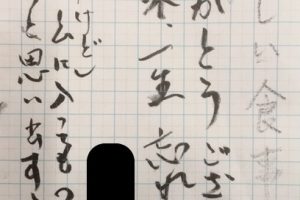 しい食事
がとうござ
一生忘れ
けど)
に入っても
と思い出す